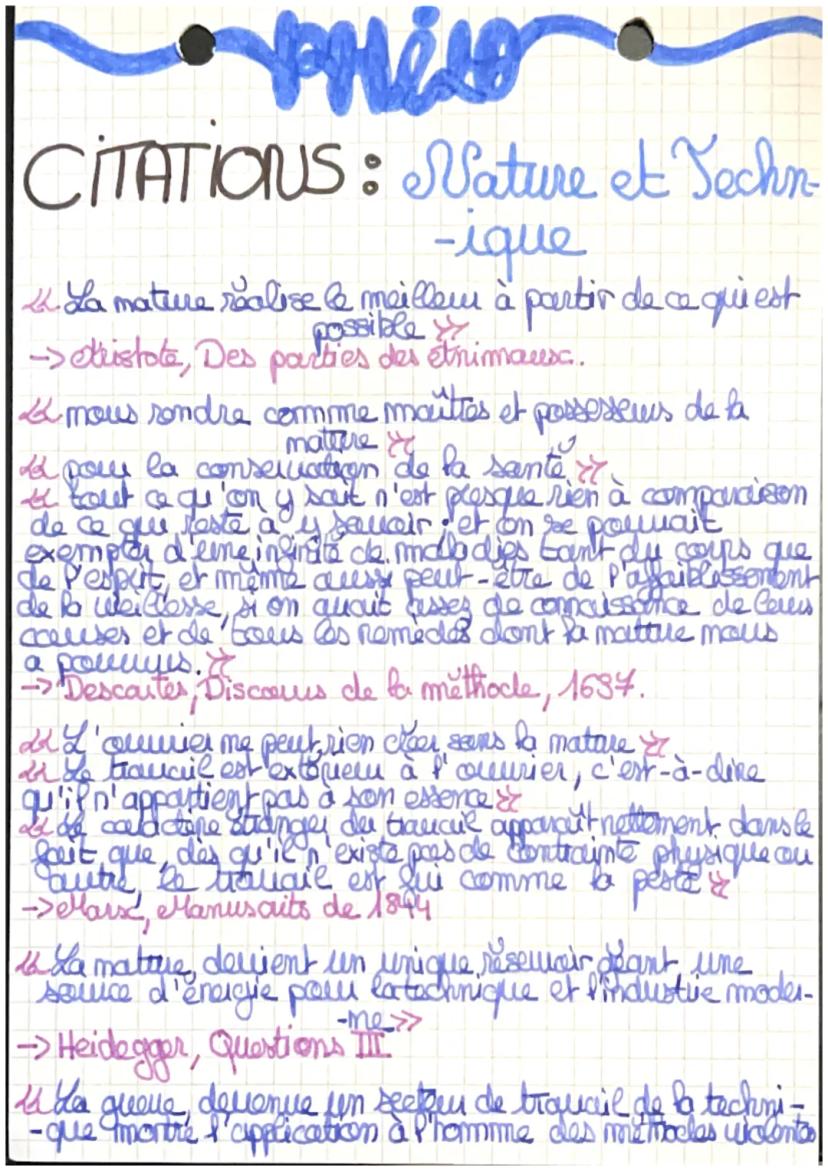 Philo
CITATIONS : Nature et Techn-
-ique
« La nature réalise le meilleur à partir de ce qui est
possible »
-> Aristote, Des parties des Animaux.
« nous rendre comme maîtres et possesseurs de la
nature »
« pour la conservation de la santé »
« tout ce qu'on y sait n'est presque rien à comparaison
de ce qui reste à y savoir : et on se pourrait
exempter d'une infinité de maladies tant du corps que
de l'esprit, et même aussi peut-être de l'affaiblissement
de la vieillesse, si on avait assez de connaissance de leurs
causes et de tous les remèdes dont la nature nous
a pourvus. »
-> Descartes, Discours de la méthode, 1637.
« L'ouvrier ne peut rien créer sans la nature »
« Le travail est extérieur à l'ouvrier, c'est-à-dire
qu'il n'appartient pas à son essence »
« Le caractère étranger du travail apparaît nettement dans le
fait que, dès qu'il n'existe pas de contrainte physique ou
autre, le travail est fui comme la peste »
-> Marx, Manuscrits de 1844
« La nature, devient un unique réservoir géant, une
source d'énergie pour la technique et l'industrie moder-
-ne »
-> Heidegger, Questions III.
« La guerre, devenue un secteur de travail de la techni-
-que montre l'application à l'homme des méthodes violentes